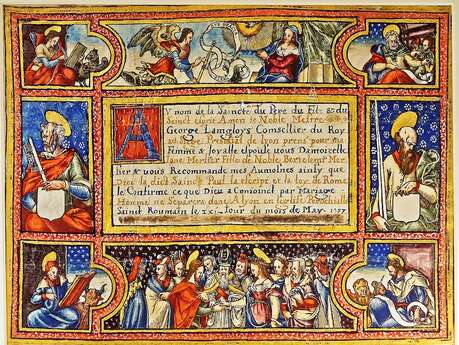 Au nom de la Saincte du Pere du Filz & du
Sainct esprit Amen le Noble Mesire
George Langloys Conseillier du Roy
Presidet de lyon prens pour ma
femme & loyalle espouse vous Damoizelle
Jane Mersier Fille de Noble Bertelemi Mer
sier & vous Recommande mes Aumolnes ainsy que
Dieu la dict Sainct Paul la escript et la loy de Rome
le Confirme ce que Dieu a Conioinct par Mariage
Homme ne Separera dans Alyon en leglise Perochialle
Sainct Roumain le xxi Jour du mois de May 1577